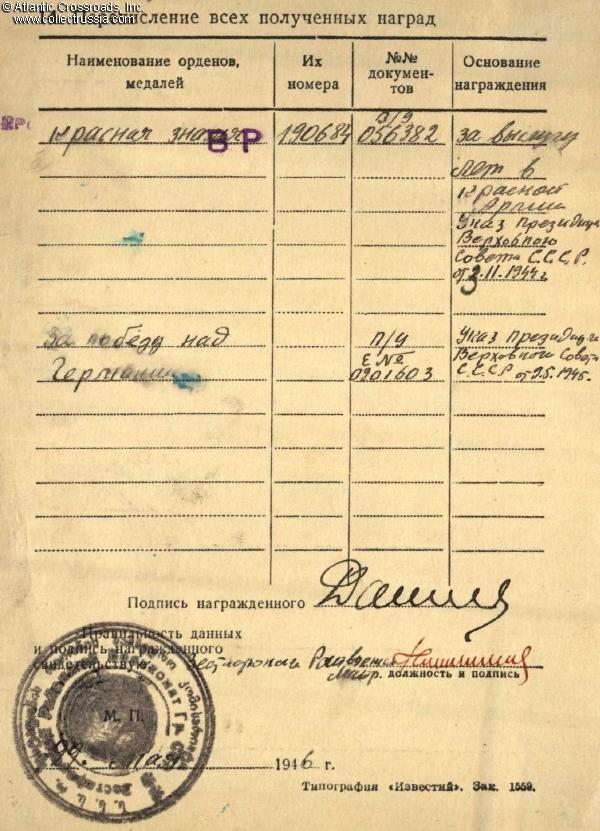 © Atlantic Crossroads, Inc.
www.collectrussia.com
исление всех полученных наград
Наименование орденов, медалей
Их номера
№№ документов
Основание награждения
Красная
ВР
190684
056382
за выслугу
лет в
Красной
Армии
Указ Президиума
Верховного
Совета С.С.С.Р.
от 3.11.1944г
За победу над
Германией
п/у
Е №
0201603
Указ Президиума
Верховного Совета
С.С.С.Р от 9.5.1945г.
Подпись награжденного
Правильность данных
и подпись награжденного
свидетельствую:
должность и подпись
М. П.
29. мая 1946 г.
Типография «Известий». Зак. 1559.